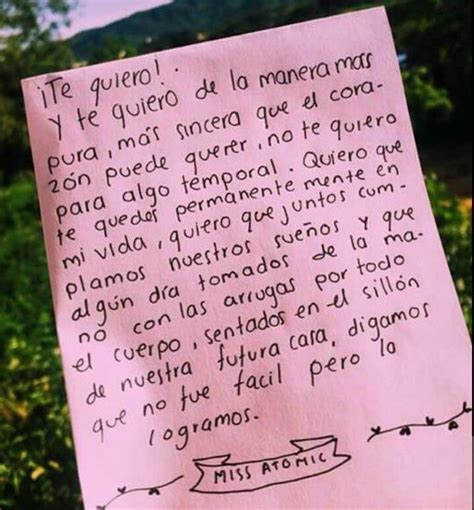 ¡Te quiero!.
Y te quiero de la manera mas
pura, más sincera que el cora-
zón puede querer, no te quiero
para algo temporal. Quiero que
te quedes permanente mente en
mi vida, quiero que juntos cum-
plamos nuestros sueños y que
algún día tomados de la ma-
no con las arrugas por todo
el cuerpo, sentados en el sillón
de nuestra futura cara, digamos
que no fue facil pero lo
logramos.
MISS ATOMIC